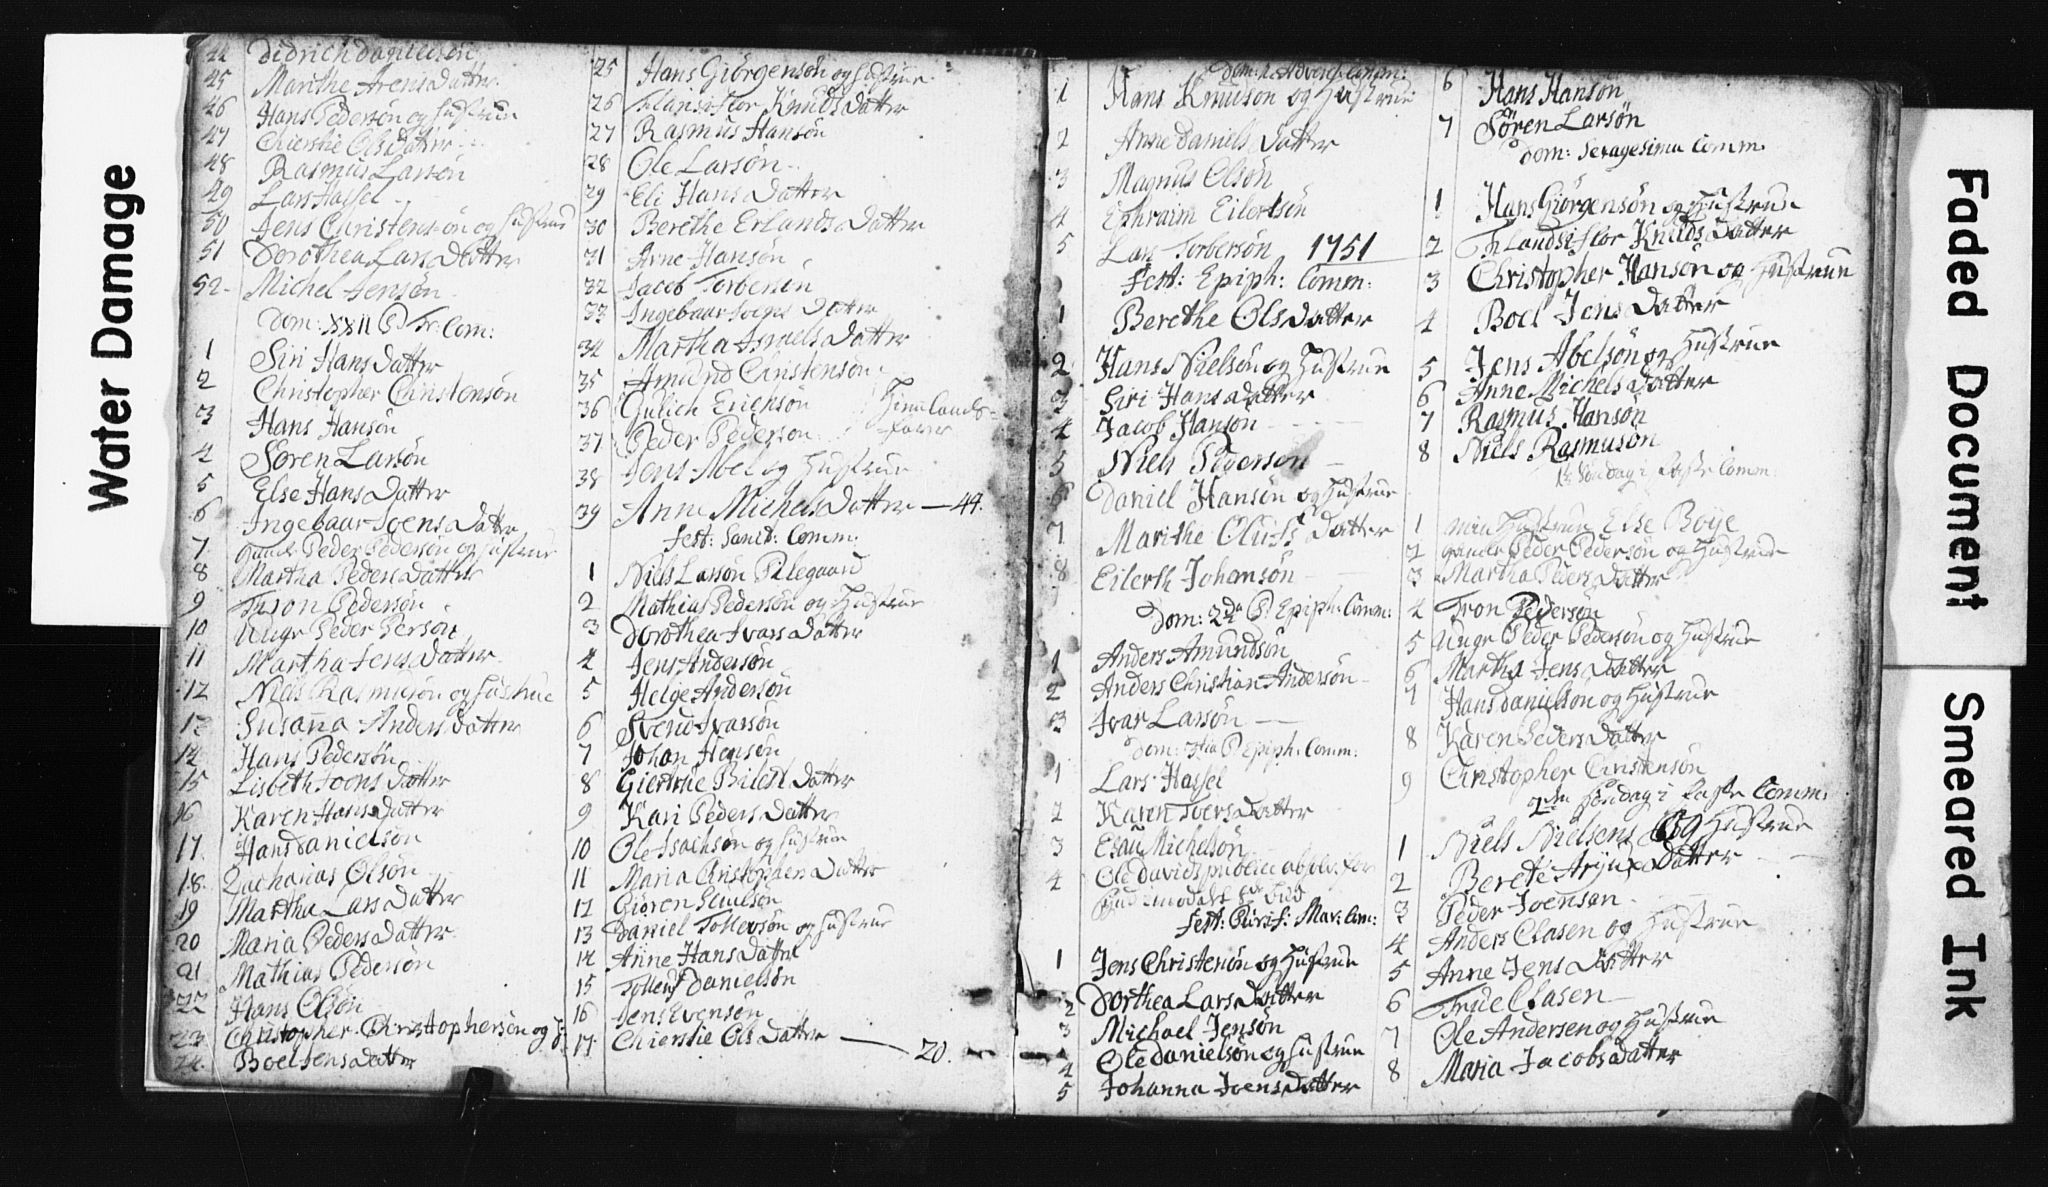 Water Damage
44 Didrich Danielsøn
45 Marithe Arens Datter
46 Hans Pedersøn og Hustrue
47 Chierstie Ols Datter
48 Rasmus Larsøn
49 Lars Hassel
50 Jens Christensøn og Hustrue
51 Dorothea Lars Datter
52. Michel Jensøn
Dom: XXII P Tr: Com:
1 Siri Hans Datter
2 Christopher Christensøn
3 Hans Hansøn
4 Søren Larsøn
5 Else Hans Datter
6 Ingebaar Joens Datter
7. gamle Peder Pedersøn og Hustrue
8 Martha Peders Datter
9 Tron Pedersøn
10 Unge Peder Persøn
11 Martha Jens Datter
12 Niels Rasmusøn og Hustrue
13 Susanna Anders Datter
14. Hans Pedersøn
15 Lisbeth Joens Datter
16 Karen Hans Datter
17. Hans Danielsøn
18. Zacharias Olsøn
19 Martha Lars Datter
20 Maria Peders Datter
21 Mathias Pedersøn
22 Hans Olsøn
23 Christopher Christophersøn og H:
24. Boel Jens Datter
25 Hans Giørgensøn og Hustrue
26 Knuds Datter
27 Rasmus Hansøn
28 Ole Larsøn
29 Eli Hans Datter
30 Berethe Erlands Datter
31 Arne Hansøn
32 Jacob Torbersøn
33 Ingebaar Joens Datter
34 Martha Ismels Datter
35 Amund Christensøn
36 Gulich Erichsøn
37 Peder Pedersøn
38 Jens Abel og Hustrue
39 Anne Michels Datter — 44.
Fest: Sanct: Comm:
1 Niels Larsøn Pilegaard
2 Mathias Pedersøn og Hustrue
3 Dorothea Ivars Datter
4 Jens Andersøn
5 Helge Andersøn
6 Svend Ivarsøn
7 Johan Hansøn
8 Giertrue Datter
9 Kari Peders Datter
10 Ole Isachsøn og Hustrue
11 Maria Christophers Datter
12 Giøren
13 Daniel Tollevsøn og Hustrue
14 Anne Hans Datter
15 Tollef Danielsøn
16 Jens Evensøn
17 Chierstie Ols Datter — 20.
Dom: 1. Advent: Comm:
1 Hans Knutson og Hustrue
2 Anne Daniels Datter
3 Magnus Olsøn
4 Ephraim Eilertsøn
5 Lars Torbersøn 1751
Fest: Epiph: Comm:
1 Berethe Ols Datter
2 Hans Nielsøn og Hustrue
3 Siri Hans Datter
4 Jacob Hansøn
5 Niels Pedersøn
6 Daniel Hansøn og Hustrue
7 Marithe Olufs Datter
8 Eilerth Johansøn
Dom: 2da P. Epiph: Comm:
1 Anders Amundsøn
2 Anders Christian Andersøn
3 Ivar Larsøn
Dom: 3tia P Epiph: Comm:
1 Lars Hassel
2 Karen Joens Datter
3 Esau Michelsøn
4 Ole Davids publice absolv: for
Fest: Purif: Mar: Com:
1 Jens Christensøn og Hustrue
2 Dorthea Lars Datter
3 Michael Jensøn
4 Ole Danielsøn og Hustrue
5 Johanna Joens Datter
6 Hans Hansøn
7 Søren Larsøn
Dom: Sexagesima Comm:
1 Hans Giørgensøn og Hustrue
2 Knuds Datter
3 Christopher Hansøn og Hustrue
4 Boel Jens Datter
5 Jens Abelsøn og Hustrue
6 Anne Michels Datter
7 Rasmus Hansøn
8 Niels Rasmusøn
1te Søndag i Faste Comm:
1 min Hustrue Else Boye
2 gamle Peder Pedersøn og Hustrue
3 Martha Peders Datter
4 Tron Pedersøn
5 Unge Peder Pedersøn og Hustrue
6 Martha Jens Datter
7 Hans Danielsøn og Hustrue
8 Karen Peders Datter
9 Christopher Christensøn
2den Søndag i Faste Comm:
1 Niels Nielsens og Hustrue
2 Berete Datter
3 Peder Joensøn
4 Anders Clasen og Hustrue
5 Anne Jens Datter
6 True Clasen
7 Ole Andersen og Hustrue
8 Maria Jacobs Datter
Faded Document
Smeared Ink